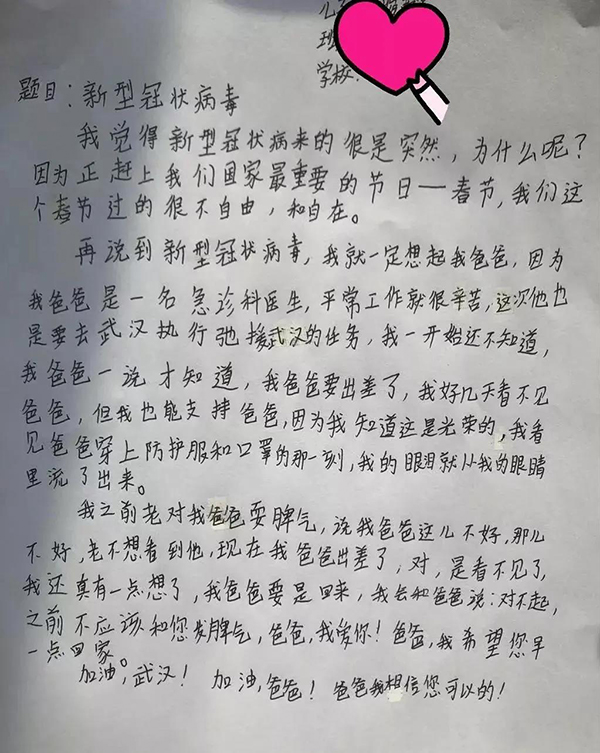 班
学校：
题目：新型冠状病毒
我觉得新型冠状病来的很是突然，为什么呢？
因为正赶上我们国家最重要的节日——春节，我们这
个春节过的很不自由，和自在。
再说到新型冠状病毒，我就一定想起我爸爸，因为
我爸爸是一名急诊科医生，平常工作就很辛苦，这次他也
是要去武汉执行弛援武汉的任务，我一开始还不知道，
我爸爸一说才知道，我爸爸要出差了，我好几天看不见
爸爸，但我也能支持爸爸，因为我知道这是光荣的，我看
见爸爸穿上防护服和口罩的那一刻，我的眼泪就从我的眼睛
里流了出来。
我之前老对我爸爸耍脾气，说我爸爸这儿不好，那儿
不好，老不想看到他，现在我爸爸出差了，对，是看不见了，
我还真有一点想了，我爸爸要是回来，我会和爸爸说：对不起，
之前不应该和您发脾气，爸爸，我爱你！爸爸，我希望您早
一点回家。
加油，武汉！加油，爸爸！爸爸我相信您可以的！